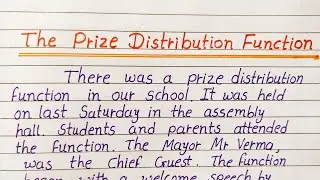 The Prize Distribution Function
There was a prize distribution
function in our school. It was held
on last Saturday in the assembly
hall. Students and parents attended
the function. The Mayor Mr Verma,
was the Chief Guest. The function
began with a welcome speech by